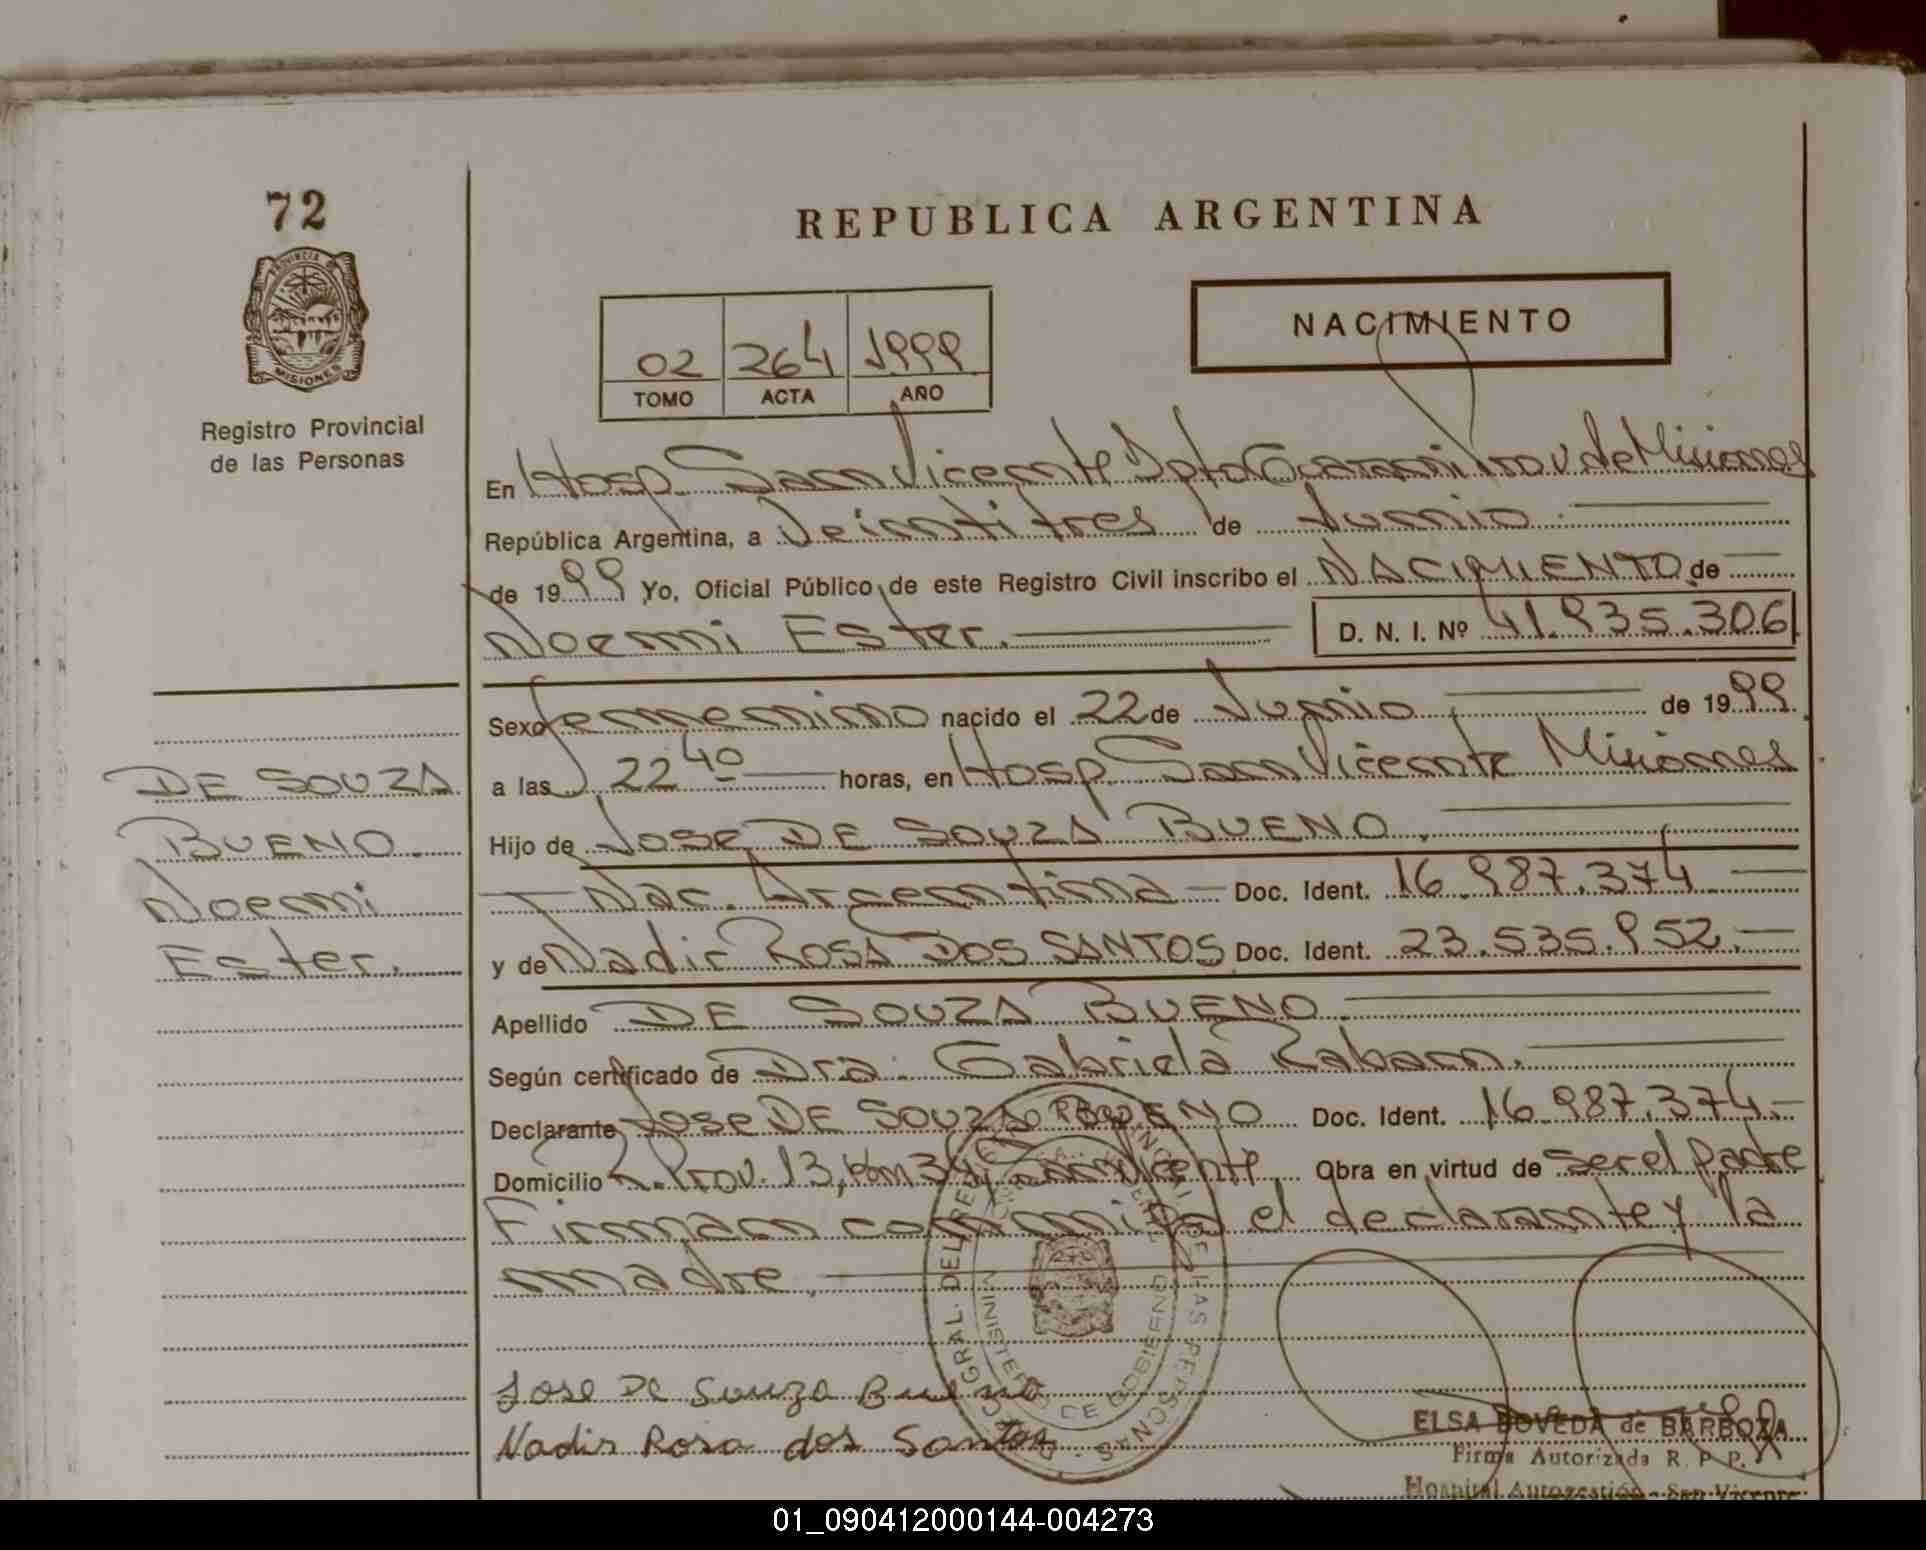 72
REPUBLICA ARGENTINA
PROVINCIA DE
MISIONES
Registro Provincial
de las Personas
NACIMIENTO
02 264 1999
TOMO ACTA AÑO
En Hosp. San Vicente Dpto Guarani Prov de Misiones
República Argentina, a Veintitres de Junio
de 1999 Yo, Oficial Público de este Registro Civil inscribo el NACIMIENTO de
Noemi Ester. D. N. I. Nº 41.935.306
Sexo femenino nacido el 22 de Junio de 1999.
a las 22 40 horas, en Hosp. San Vicente Misiones
Hijo de Jose DE SOUZA BUENO.
Nac. Argentina Doc. Ident. 16.987.374
y de Nadir ROSA DOS SANTOS Doc. Ident. 23.535.952.
Apellido DE SOUZA BUENO.
Según certificado de Dra. Gabriela Raban.
Declarante Jose DE SOUZA BUENO Doc. Ident. 16.987.374.
Domicilio R. Prov. 13, Km 34, San Vicente Obra en virtud de ser el padre
Firman conmigo el declarante y la
madre.
DE SOUZA
BUENO.
Noemi
Ester.
Jose De Souza Bueno
Nadir Rosa dos Santos
ELSA BOVEDA de BARBOZA
Firma Autorizada R. P. P.
Hospital Autogestión - San Vicente
01_090412000144-004273